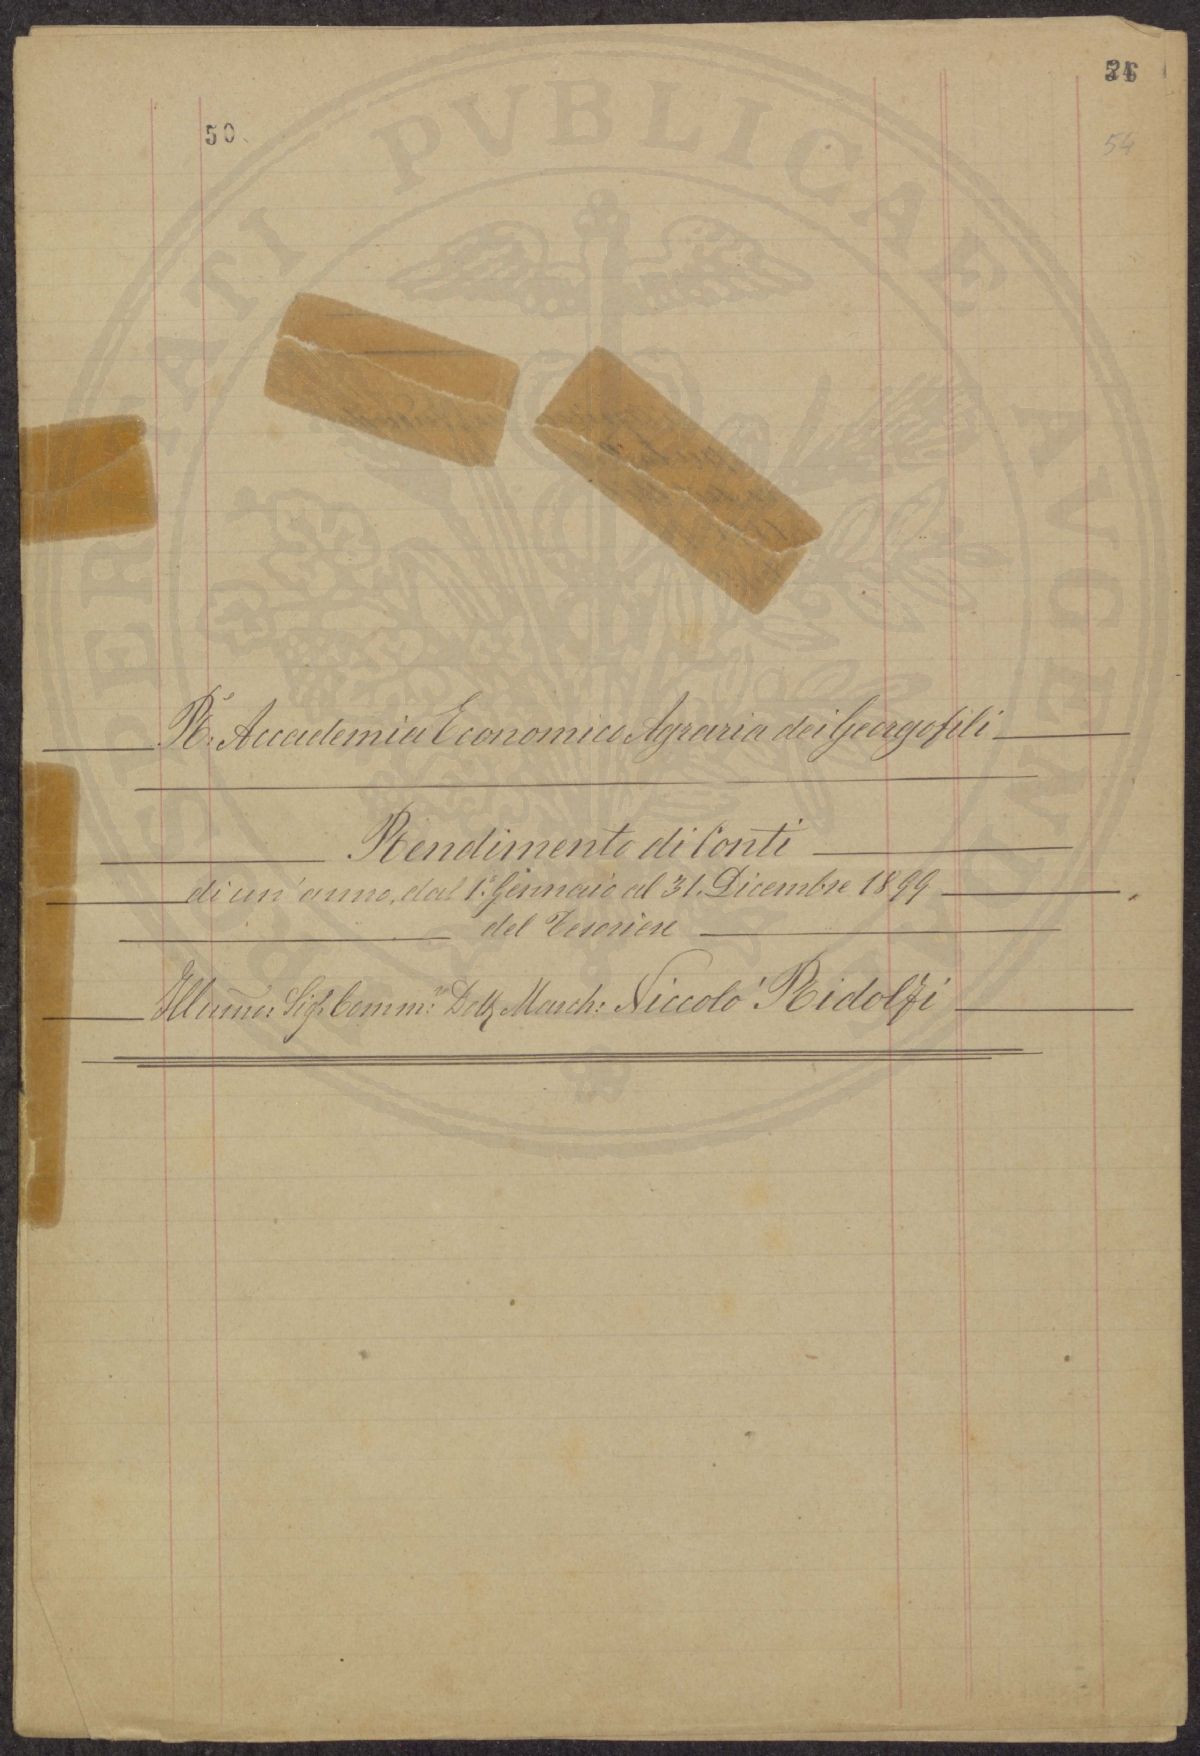 50
54
R. Accademia Economico Agraria dei Georgofili
Rendimento di Conti
di un' anno, dal 1° Gennaio al 31. Dicembre 1899
del Tesoriere
Illumo: Sigr. Comm:re Dott March: Niccolò Ridolfi
PROSPERITATI PVBLICAE AVGENDAE